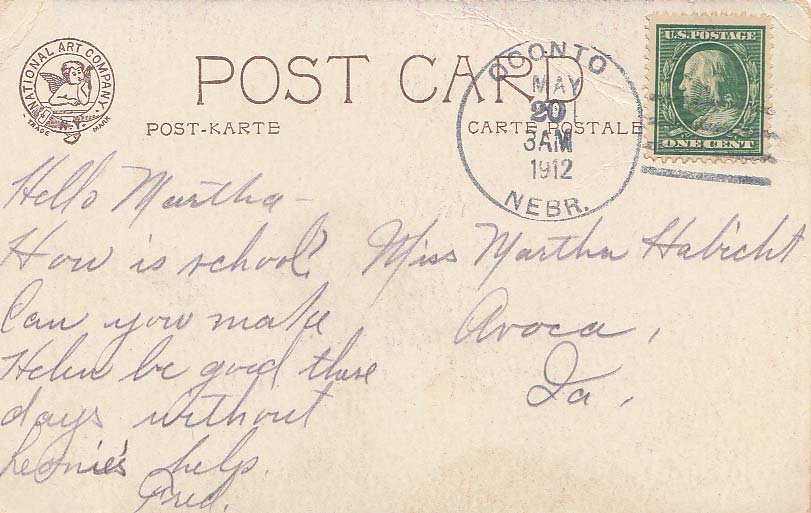 NATIONAL ART COMPANY
N.Y.
TRADE MARK
POST CARD
POST-KARTE
CARTE POSTALE
OCONTO
MAY
20
3 AM
1912
NEBR.
U.S. POSTAGE
ONE CENT
Hello Martha –
How is school?
Can you make
Helen be good these
days without
Leonie's help.
Fred.
Miss Martha Habicht
Avoca,
Ia,